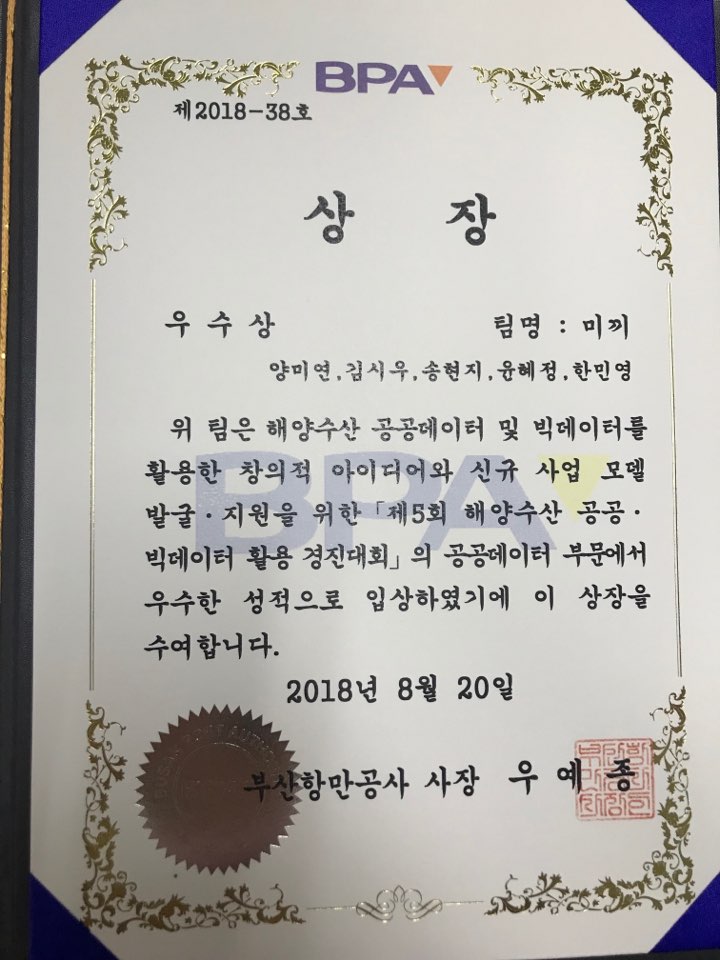 BPA
제2018-38호
상 장
우 수 상 팀명 : 미끼
양미연,김시우,송현지,윤혜정,한민영
위 팀은 해양수산 공공데이터 및 빅데이터를
활용한 창의적 아이디어와 신규 사업 모델
발굴·지원을 위한「제5회 해양수산 공공·
빅데이터 활용 경진대회」의 공공데이터 부문에서
우수한 성적으로 입상하였기에 이 상장을
수여합니다.
2018년 8월 20일
부산항만공사 사장 우 예 종